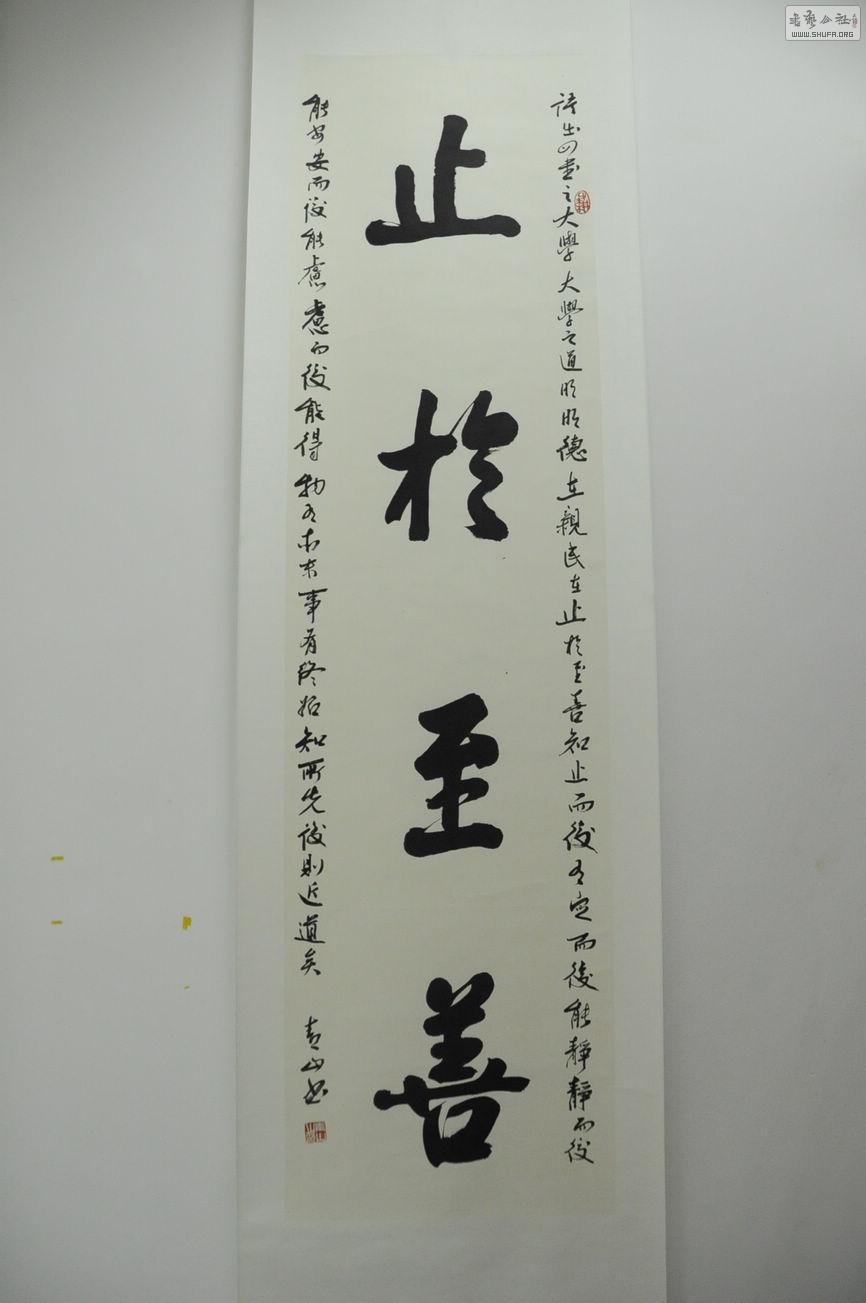 語出四書之大學大學之道明明德在親民在止於至善知止而後有定而後能靜靜而後
止於至善
能安安而後能慮慮而後能得物有本末事有終始知所先後則近道矣 青山書
書藝公社
WWW.SHUFA.ORG